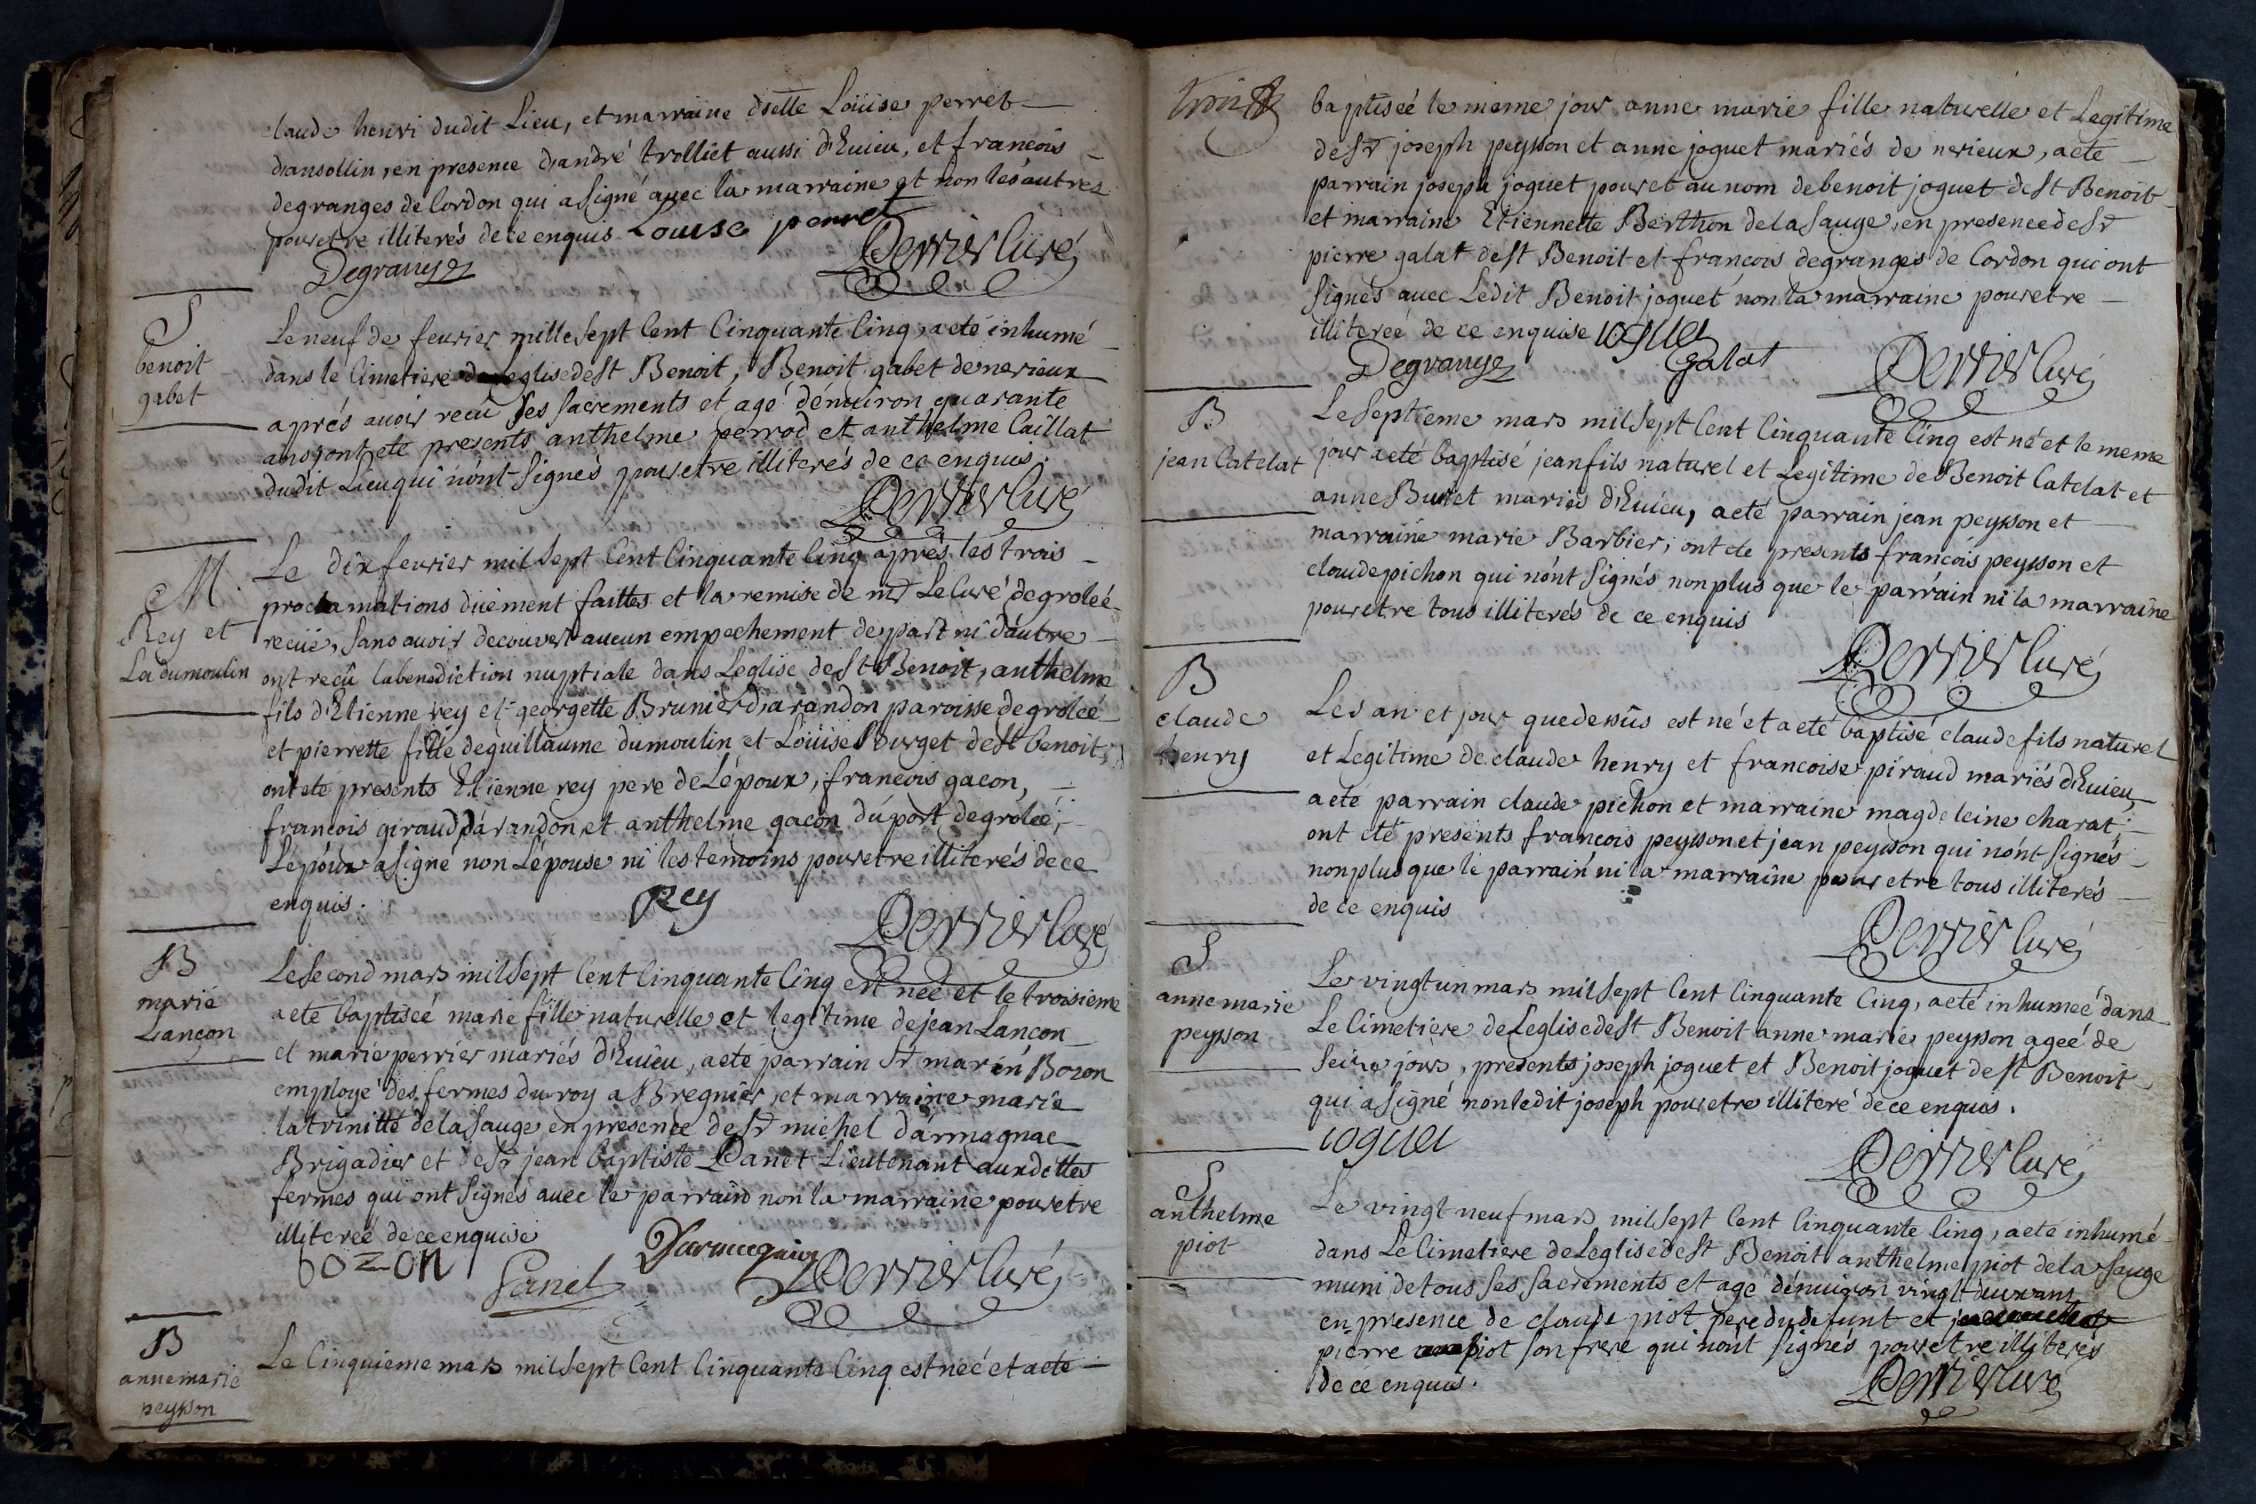 claude henri dudit Lieu, et marraine dselle Loüise perret
d'ansollin, en presence d'andré trolliet aussi d'Euieu, et francois
degranges de Cordon qui a signé avec la marraine et non les autres
pour etre illiterés de ce enquis. Louise perret
Degranges Perrier Curé
S
benoit
gabet
Le neuf de feurier mille sept Cent Cinquante Cinq, a eté inhumé
dans le Cimetiere de Leglise de st Benoit, Benoit gabet de nerieux
aprés auoir recû ses sacrements et agé d'énuiron quarante
ans, ont eté presents anthelme perrod et anthelme Caillat
dudit Lieu qui n'ont signés pour etre illiterés de ce enquis.
Perrier Curé
M
Rey et
La dumoulin
Le dix feurier mil sept Cent Cinquante Cinq aprés les trois
proclamations düement faittes et la remise de mr Le Curé de groleé
recüe, sans auoir decouvert aucun empechement de part ni d'autre
ont recû la benediction nuptiale dans Leglise de st Benoit, anthelme
fils d'Etienne rey et georgette Brunier d'arandon paroisse de groleé
et pierrette fille de guillaume dumoulin et Loüise Burget de st benoit,
ont eté presents Etienne rey pere de Lépoux, francois gacon,
francois giraud d'arandon et anthelme gacon du port de groleé,
Lépoux a signé non Lépouse ni les temoins pour etre illiterés de ce
enquis. Rey
Perrier Curé
B
marie
Lançon
Le second mars mil sept Cent Cinquante Cinq est neé et le troisieme
a eté baptiseé marie fille naturelle et legitime de jean Lançon
et marie perrier mariés d'Euieu, a eté parrain Sr marin Bozon
employé des fermes du roy a Bregnier, et marraine marie
latrinitté de la Sauge en presence de Sr michel d'armagnac
Brigadier et de Sr jean baptiste Panet Lieutenant auxdittes
fermes qui ont signés auec le parrain non la marraine pour etre
illitereé de ce enquise
bozon Panet Darmagnac Perrier Curé
B
anne marie
peysson
Le Cinquieme mars mil sept Cent Cinquante Cinq est neé et a eté
baptiseé le meme jour anne marie fille naturelle et Legitime
de Sr joseph peysson et anne joguet mariés de nerieux, a eté
parrain joseph joguet pour et au nom de benoit joguet de st Benoit
et marraine Etiennette Berthon de la Sauge, en presence de Sr
pierre galat de st Benoit et francois degranges de Cordon qui ont
signés auec Ledit Benoit joguet non la marraine pour etre
illitereé de ce enquise joguet
Degranges galat Perrier Curé
B
jean Catelat
Le septieme mars mil sept Cent Cinquante Cinq est né et le meme
jour a eté baptisé jean fils naturel et Legitime de Benoit Catelat et
anne Buttet mariés d'Euieu, a eté parrain jean peysson et
marraine marie Barbier, ont eté presents francois peysson et
claude pichon qui n'ont signés non plus que le parrain ni la marraine
pour etre tous illiterés de ce enquis
Perrier Curé
B
claude
henry
Les an et jour que dessûs est né et a eté baptisé claude fils naturel
et Legitime de claude henry et francoise piraud mariés d'Euieu,
a eté parrain claude pichon et marraine magdeleine charat,
ont eté presents francois peysson et jean peysson qui n'ont signés
non plus que le parrain ni la marraine pour etre tous illiterés
de ce enquis
Perrier Curé
S
anne marie
peysson
Le vingt un mars mil sept Cent Cinquante Cinq, a eté inhumeé dans
Le Cimetiere de Leglise de st Benoit anne marie peysson ageé de
seize jours, presents joseph joguet et Benoit joguet de st Benoit
qui a signé non ledit joseph pour etre illiteré de ce enquis.
joguet
Perrier Curé
S
anthelme
piot
Le vingt neuf mars mil sept Cent Cinquante Cinq, a eté inhumé
dans Le Cimetiere de Leglise de st Benoit anthelme piot de la Sauge
muni de tous ses sacrements et agé d'énuiron vingt deux ans
en presence de claude piot pere du defunt et
pierre piot son frere qui n'ont signés pour etre illiterés
de ce enquis.
Perrier Curé